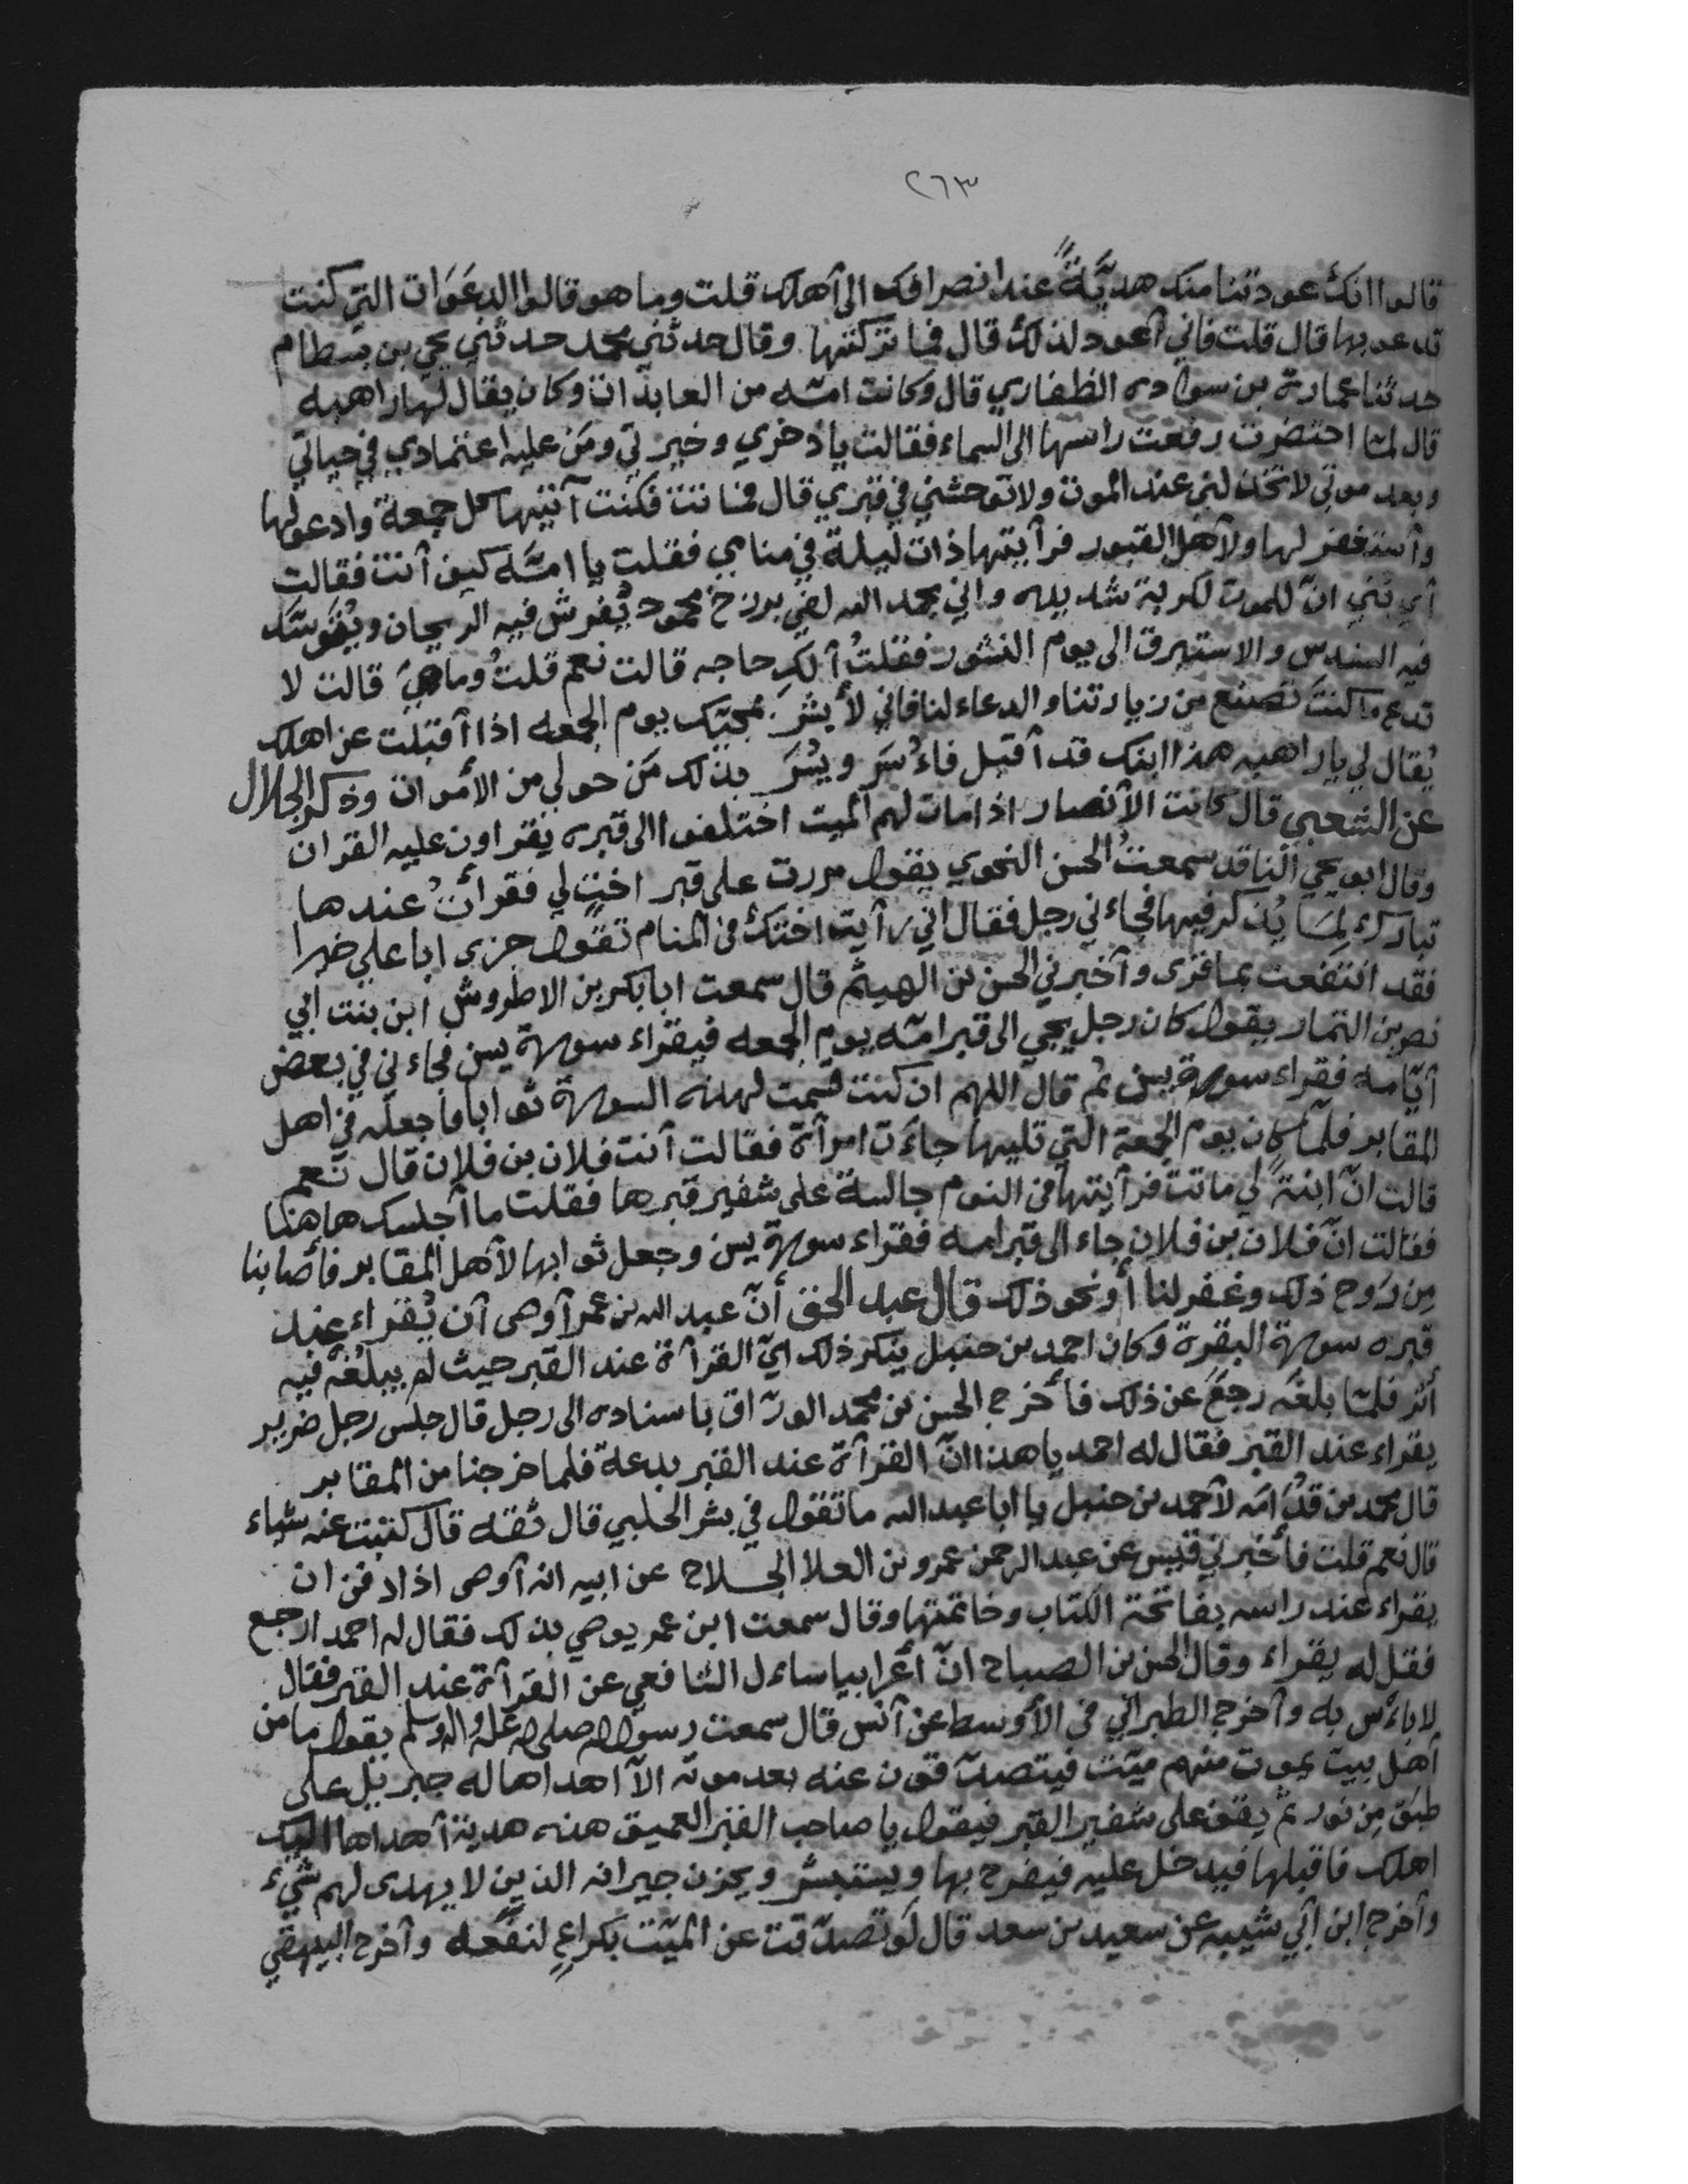 ٢٦٣
قالوا انك عودتنا منك هديّةً عند انصرافك الى آهلك قلت وما هو قالوا الدعَوَات التي كنت
تدعو بها قال قلت فاني آعود لذلك قال فما تركتها وقال حدثني محمد حدثني يحي بن بسطام
حدثنا عمارة بن سواده الظفاري قال وكانت امّه من العابدات وكان يقال لها راهبه
قال لمّا احتضرت رفعت راسها الى السماء فقالت يا ذخري وخيرتي ومَن عليه اعتمادي في حياتي
وبعد موتي لا تخذلني عند الموت ولا توحشني في قبري قال فماتت فكنت آتيها كل جمعة وادعو لها
وآستغفر لها ولآهل القبور فرآيتها ذات ليلة في منامي فقلت يا امّه كيف آنت فقالت
آي بُني انّ للموت لكربة شديده واني بحمد الله لفي برزخ محمود يُفرش فيه الريحان ويُتوسّد
فيه السندس والاستبرق الى يوم النشور فقلتُ آلكِ حاجه قالت نعم قلتُ وما هيَ قالت لا
تدع ما كنتَ تصنع من زيارتنا والدعاء لنا فاني لأبشّر بمجيّك يوم الجمعه اذا آقبلت عن اهلك
يُقال لي يا راهبه هذا ابنك قد آقبل فاءُسَر ويُسَر بذلك مَن حولي من الأموات وذكر الجلال
عن الشعبي قال كانت الآنصار اذا مات لهم الميت اختلفوا الى قبره يقراون عليه القران
وقال ابو يحي الناقد سمعتُ الحسن النحوي يقول مررت على قبر اختٍ لي فقرأتُ عندها
تبارك لِمَا يُذكر فيها فجاءني رجل فقال اني رآيت اختك في المنام تقول جزى ابا علي خيرا
فقد انتفعت بما قرى وآخبرني الحسن بن الهيثم قال سمعت ابا بكر بن الاطروش ابن بنت ابي
نصر بن التمار يقول كان رجل يجي الى قبر امّه يوم الجمعه فيقراء سورة يس فجاءني في بعض
آيّامه فقراء سورة يس ثم قال اللهم ان كنت قسمت لهذه السورة ثوابا فاجعله في اهل
المقابر فلمّا كان يوم الجمعة التي تليها جاءَت امرآة فقالت آنت فلان بن فلان قال نعم
قالت انّ ابنةً لي ماتت فرآيتها في النوم جالسة على شفير قبرها فقلت ما آجلسك هاهنا
فقالت انّ فلان بن فلان جاء الى قبر امه فقراء سورة يس وجعل ثوابها لآهل المقابر فأصابنا
مِن رَوح ذلك وغفر لنا أو نحو ذلك قال عبد الحق أنّ عبد الله بن عمر آوصى آن يُقراء عند
قبره سورة البقرة وكان احمد بن حنبل ينكر ذلك اي القرآة عند القبر حيث لم يبلغه فيه
أثر فلمّا بلغه رجعَ عن ذلك فأخرج الحسن بن محمد الورّاق باسناده الى رجل قال جلس رجل ضرير
يقراء عند القبر فقال له احمد يا هذا انّ القرآة عند القبر بدعة فلما خرجنا من المقابر
قال محمد بن قدُامه لآحمد بن حنبل يا ابا عبد الله ما تقول في بشر الحلبي قال ثقه قال كتبت عنه شياء
قال نعم قلت فأخبرني قيس عن عبد الرحمن عمرو بن العلا الجلاح عن ابيه انه آوصى اذا دفن ان
يقراء عند راسه بفاتحة الكتاب وخاتمتها وقال سمعت ابن عمر يوصي بذلك فقال له احمد ارجع
فقل له يقراء وقال الحسن بن الصباح انّ أعرابيا ساءل الشافعي عن القرآة عند القبر فقال
لا باءَس به وآخرج الطبراني في الأوسط عن آنس قال سمعت رسول الله صلى الله عليه واله وسلم يقول ما من
آهل بيت يموت منهم ميّت فيتصدّقون عنه بعد موته الآ اهداها له جبريل على
طبق مِن نور ثمّ يقف على شفير القبر فيقول يا صاحب القبر العميق هذه هدية آهداها اليك
اهلك فاقبلها فيدخل عليه فيفرح بها ويستبشر ويحزن جيرانه الذين لا يهدى لهم شيء
وآخرج ابن آبي شيبه عن سعيد بن سعد قال لَو تصدّقت عن الميّت بكراعٍ لنفَعه وآخرج البيهقي